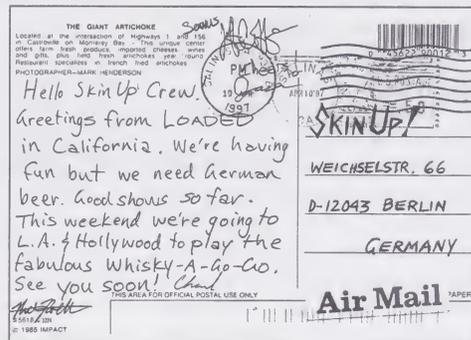 THE GIANT ARTICHOKE
Located at the intersection of Highways 1 and 156
in Castroville on Monterey Bay - This unique center
offers farm fresh produce, imported cheeses, wines
and gifts, plus field fresh artichokes year round.
Restaurant specializes in french fried artichokes
PHOTOGRAPHER—MARK HENDERSON
Hello Skin Up Crew.
Greetings from LOADED
in California. We're having
fun but we need German
beer. Good shows so far.
This weekend we're going to
L.A. & Hollywood to play the
fabulous Whisky-A-Go-Go.
See you soon!
© 1985 IMPACT
THIS AREA FOR OFFICIAL POSTAL USE ONLY
PM
1997
SKIN UP!
WEICHSELSTR. 66
D-12043 BERLIN
GERMANY
Air Mail